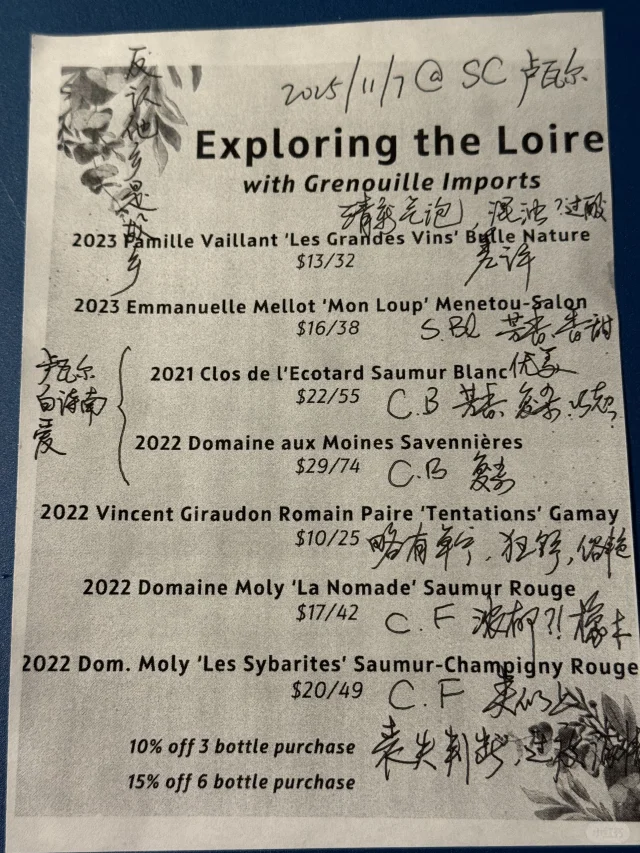 2025/11/7 @ SC 卢瓦尔
反认他乡是故乡
Exploring the Loire
with Grenouille Imports
清新气泡, 混浊? 过酸
2023 Famille Vaillant 'Les Grandes Vins' Bulle Nature
$13/32 差评
2023 Emmanuelle Mellot 'Mon Loup' Menetou-Salon
$16/38 S.Bl 芳香 香甜
卢瓦尔
白诗南
爱
2021 Clos de l'Ecotard Saumur Blanc 优美
$22/55 C.B 芳香 复杂
2022 Domaine aux Moines Savennières
$29/74 C.B 复杂
2022 Vincent Giraudon Romain Paire 'Tentations' Gamay
$10/25 略有单宁, 狂野,
2022 Domaine Moly 'La Nomade' Saumur Rouge
$17/42 C.F 浓郁?! 橡木
2022 Dom. Moly 'Les Sybarites' Saumur-Champigny Rouge
$20/49 C.F 类似上
10% off 3 bottle purchase 丧失判断,
15% off 6 bottle purchase
小红书